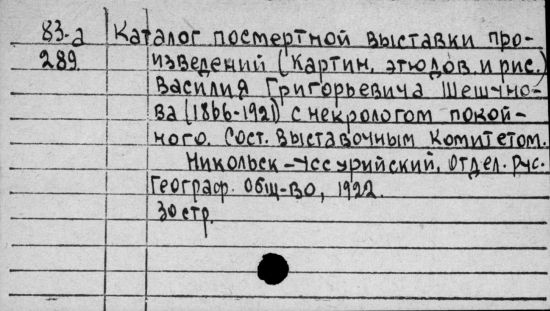 83-а Каталог посмертной выставки про-
289 изведений (картин, этюдов и рис.)
Василия Григорьевича Шешуно-
ва (1866-1921) с некрологом покой-
ного. Сост. Выставочным Комитетом.
Никольск-Уссурийский, Отдел. Рус.
Географ. Общ-во, 1922.
30 стр.